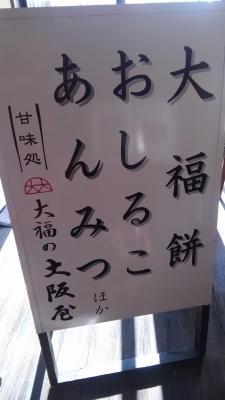 大福餅
おしるこ
あんみつ
ほか
甘味処
大福の大阪屋